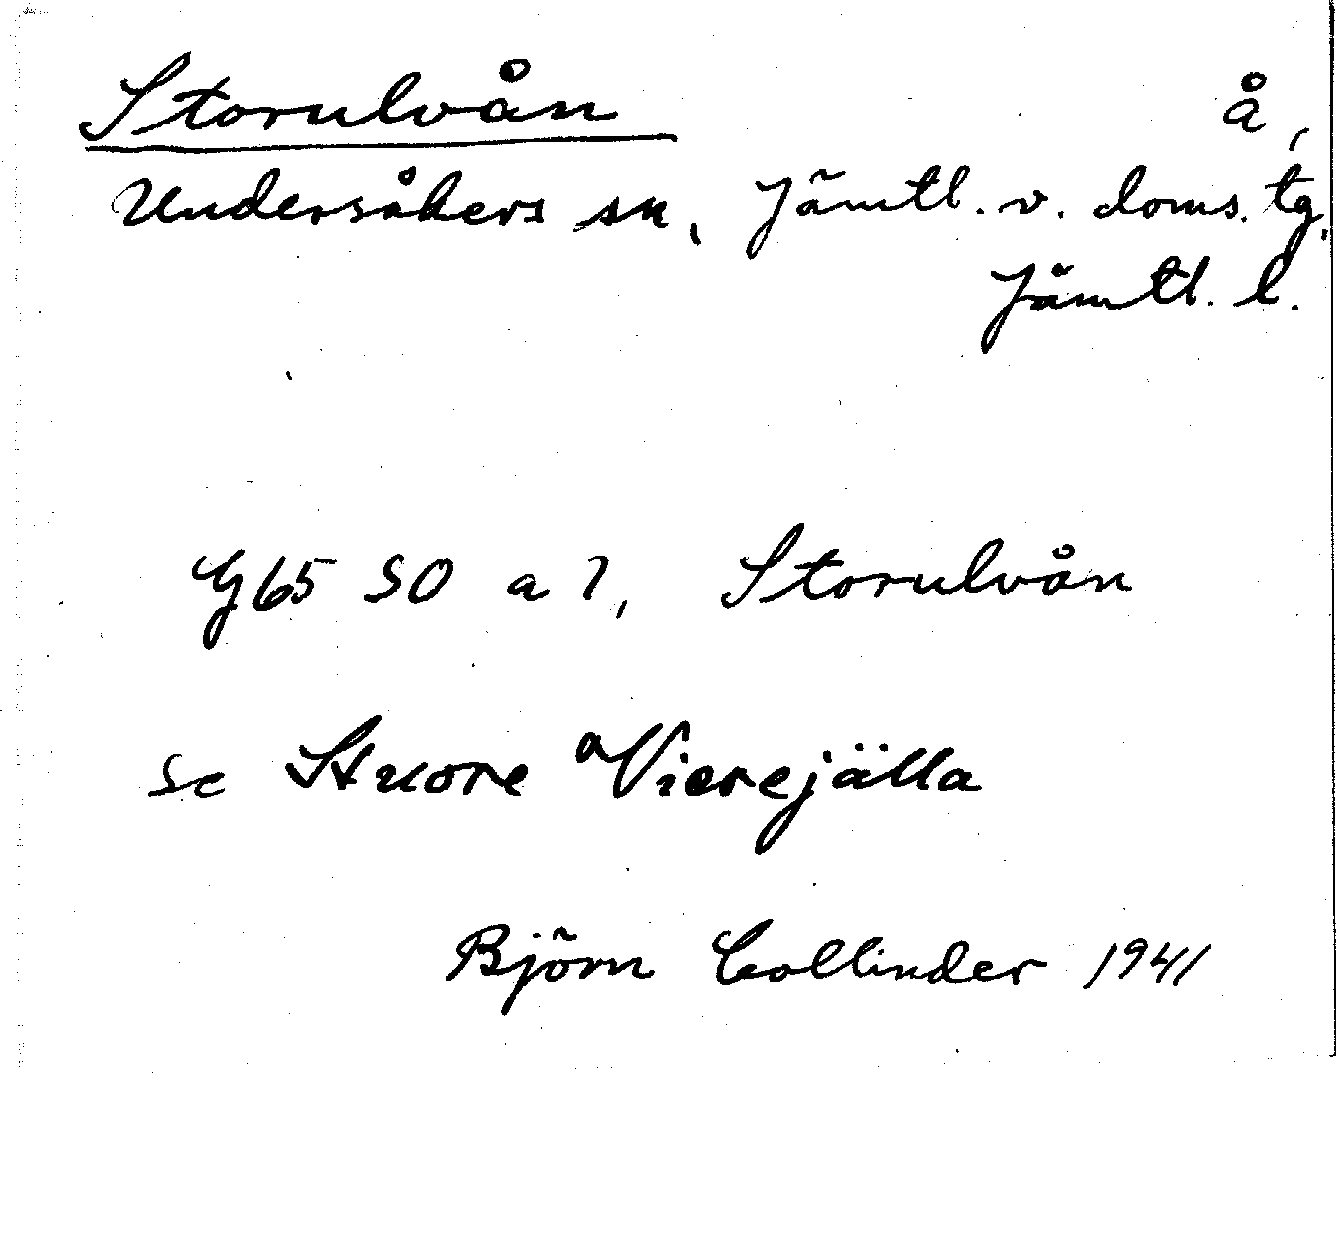 Storulvån å,
Undersåkers sn, Jämtl. v. doms. tg,
Jämtl. l.
G65 SO a 7, Storulvån
se Stuore ᵃVierejälla
Björn Collinder 1941